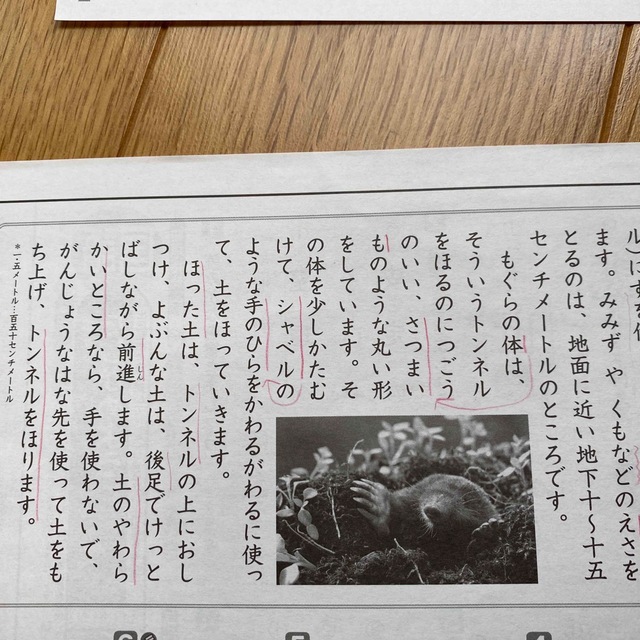 ます。みみず や くもなどのえさを
とるのは、地面に近い地下十〜十五
センチメートルのところです。
もぐらの体は、
そういうトンネル
をほるのにつごう
のいい、さつまい
ものような丸い形
をしています。そ
の体を少しかたむ
けて、シャベルの
ような手のひらをかわるがわるに使っ
て、土をほっていきます。
ほった土は、トンネルの上におし
つけ、よぶんな土は、後足でけっと
ばしながら前進します。土のやわら
しん
かいところなら、手を使わないで、
がんじょうなはな先を使って土をも
ち上げ、トンネルをほります。
*一・五メートル…百五十センチメートル